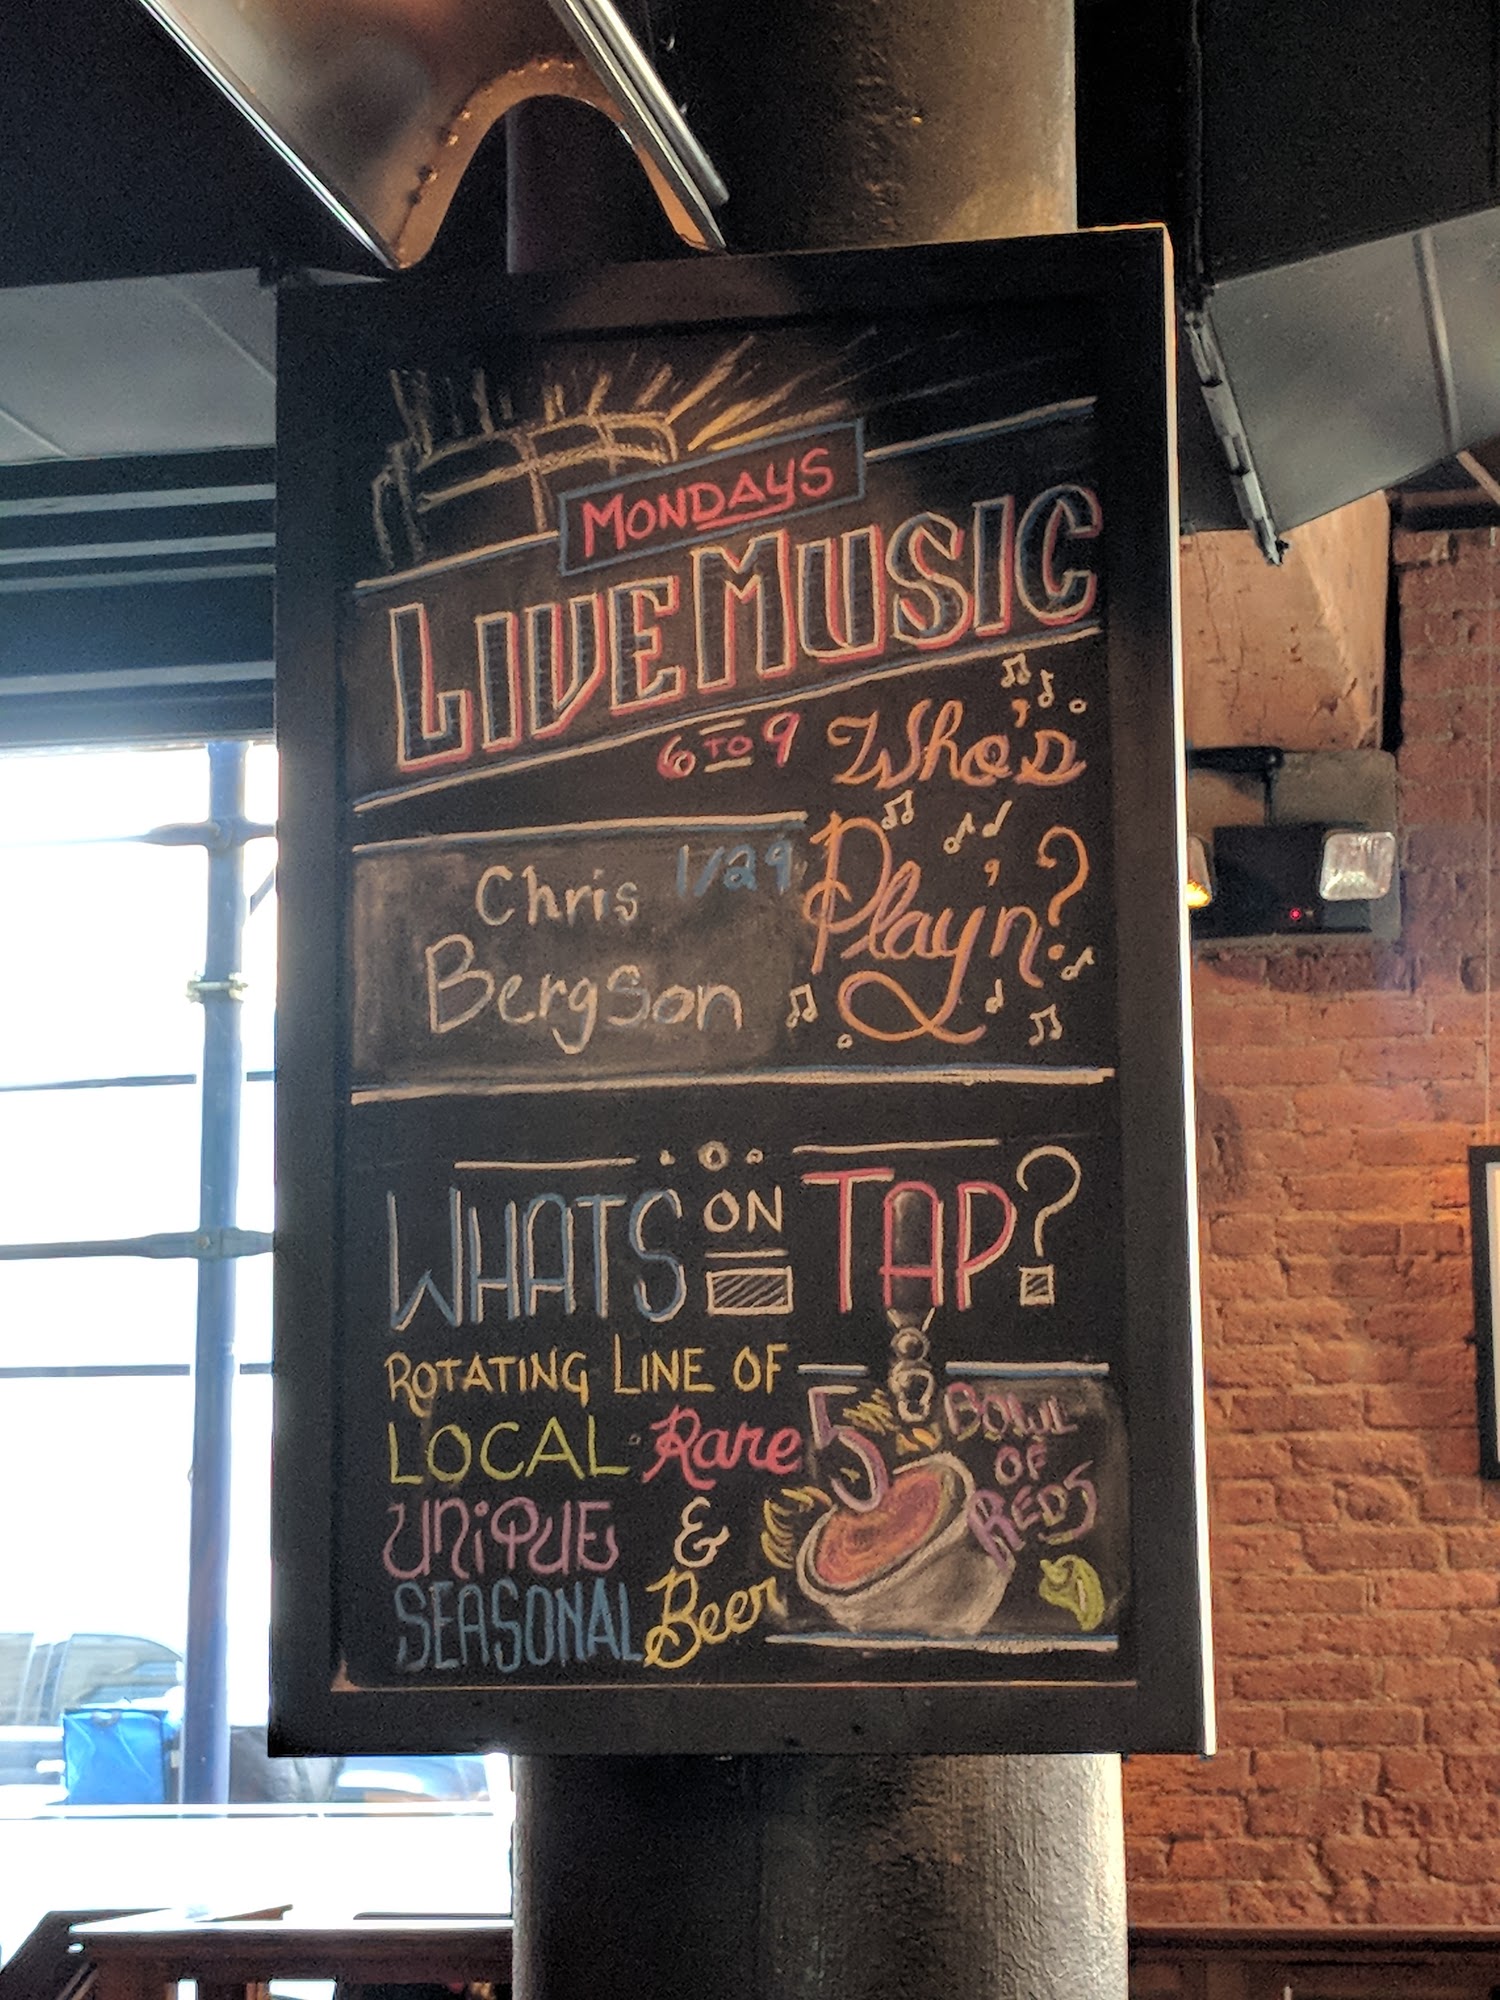 MONDAYS
LIVE MUSIC
6 TO 9
Who's
Play'n?
Chris 1/29
Bergson
WHATS ON TAP?
ROTATING LINE OF
LOCAL Rare
UNIQUE &
SEASONAL Beer
5
BOWL
OF
REDS